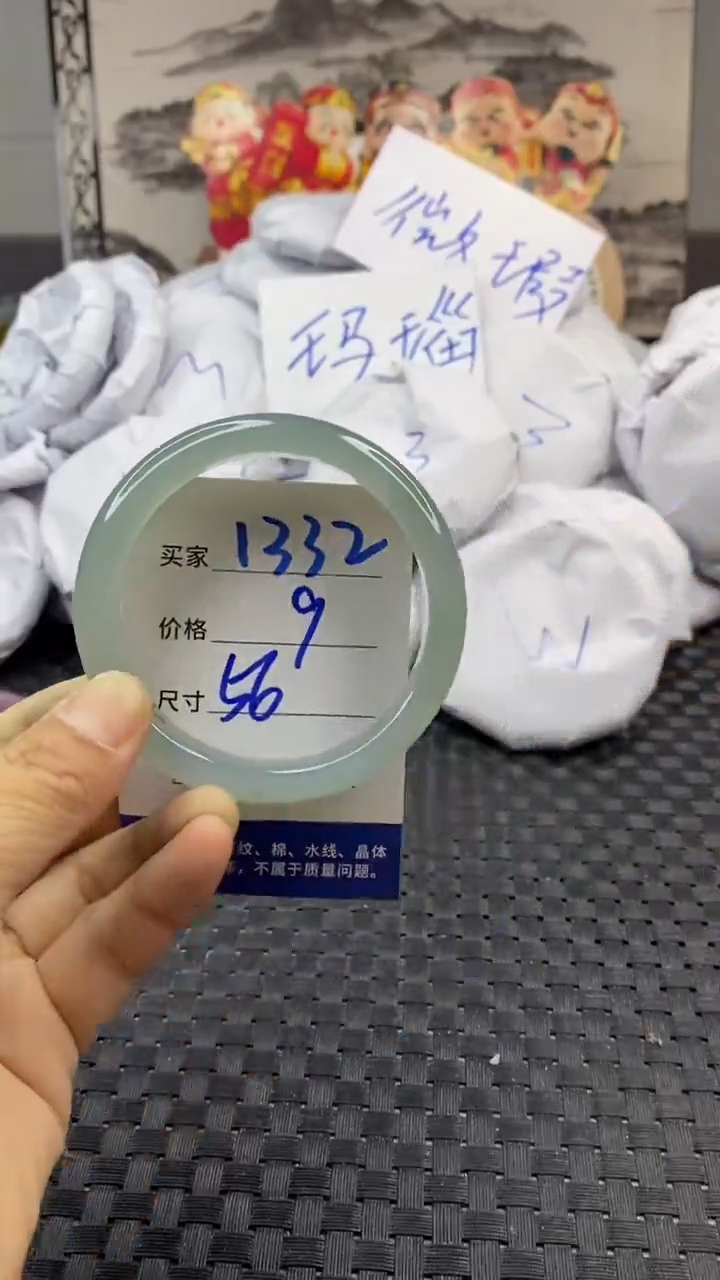 微瑕
玛瑙
3
3
买家 1332
价格 9
尺寸 56
纹、棉、水线、晶体
等，不属于质量问题。